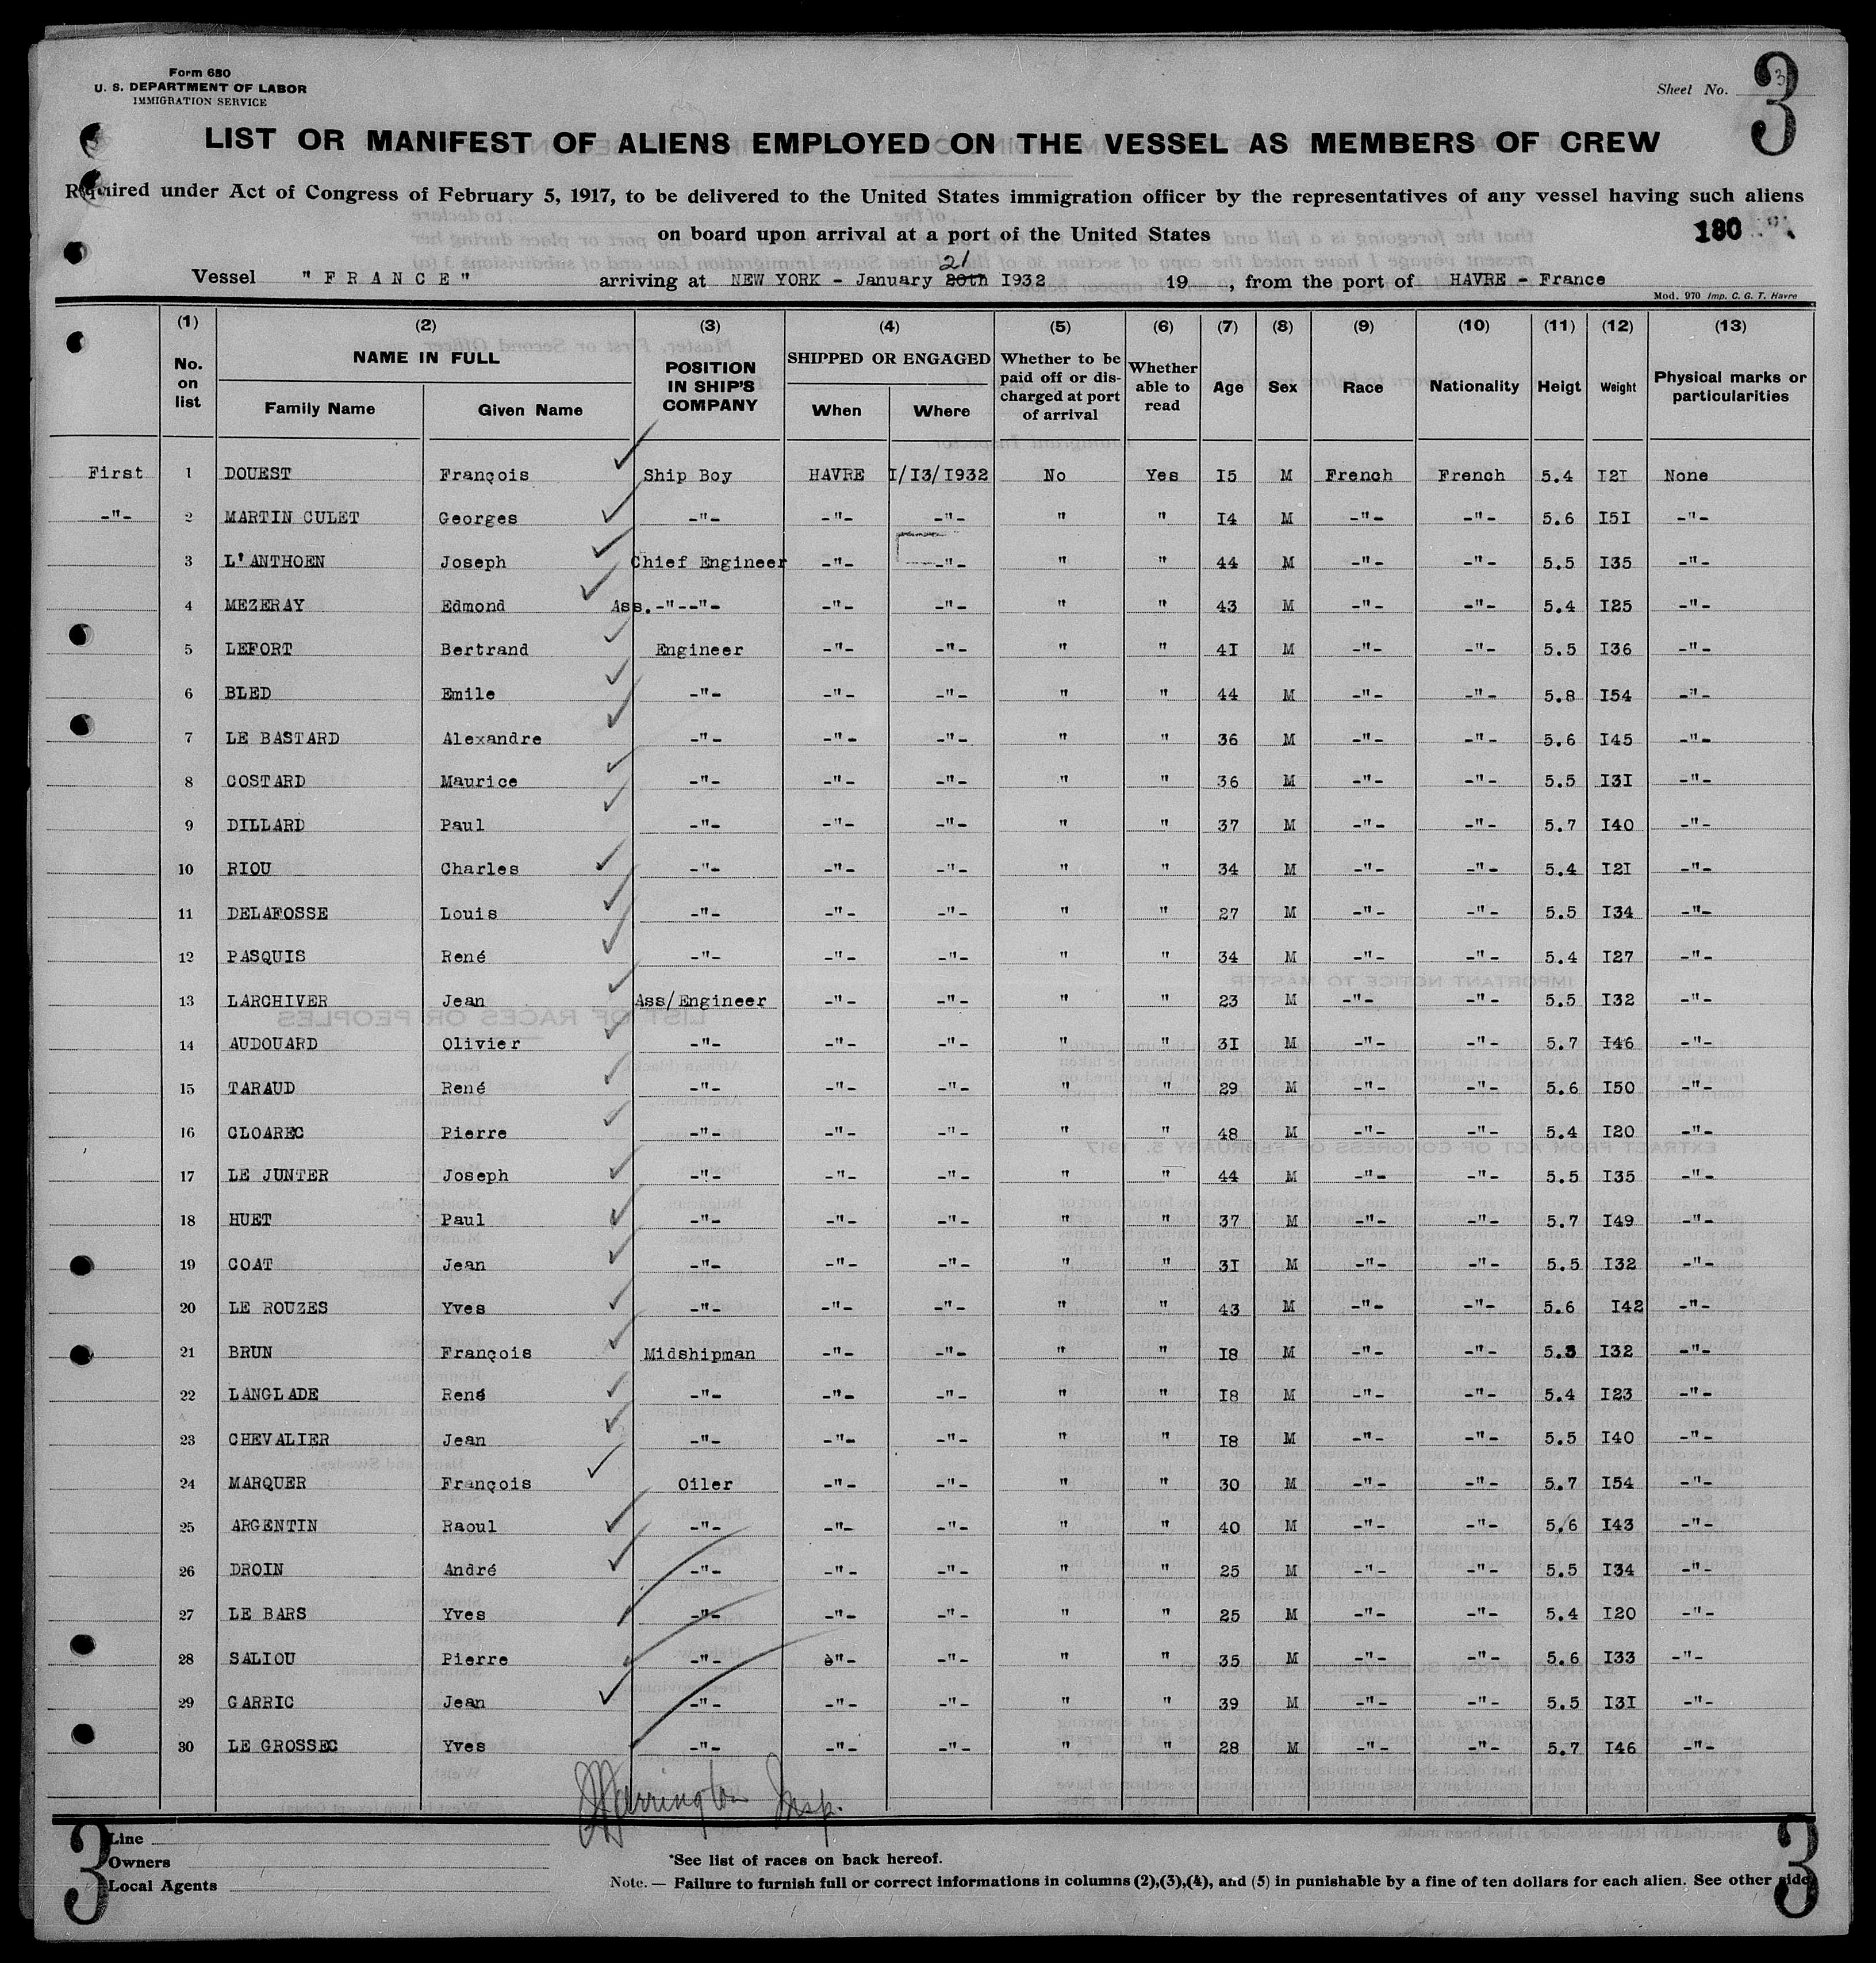 Form 680
U. S. DEPARTMENT OF LABOR
IMMIGRATION SERVICE
Sheet No. 3
3
LIST OR MANIFEST OF ALIENS EMPLOYED ON THE VESSEL AS MEMBERS OF CREW
Required under Act of Congress of February 5, 1917, to be delivered to the United States immigration officer by the representatives of any vessel having such aliens
on board upon arrival at a port of the United States
180
Vessel "FRANCE" arriving at NEW YORK - January 20th 21 I932 19 , from the port of HAVRE - France
Mod. 970 Imp. C. G. T. Havre
(1) (2) (3) (4) (5) (6) (7) (8) (9) (10) (11) (12) (13)
No. on list NAME IN FULL Family Name Given Name POSITION IN SHIP'S COMPANY SHIPPED OR ENGAGED When Where Whether to be paid off or discharged at port of arrival Whether able to read Age Sex Race Nationality Heigt Weight Physical marks or particularities
First 1 DOUEST François Ship Boy HAVRE I/I3/I932 No Yes I5 M French French 5.4 I2I None
-"- 2 MARTIN CULET Georges -"- -"- -"- " " I4 M -"- -"- 5.6 I5I -"-
3 L'ANTHOEN Joseph Chief Engineer -"- -"- " " 44 M -"- -"- 5.5 I35 -"-
4 MEZERAY Edmond Ass.-"--"- -"- -"- " " 43 M -"- -"- 5.4 I25 -"-
5 LEFORT Bertrand Engineer -"- -"- " " 4I M -"- -"- 5.5 I36 -"-
6 BLED Emile -"- -"- -"- " " 44 M -"- -"- 5.8 I54 -"-
7 LE BASTARD Alexandre -"- -"- -"- " " 36 M -"- -"- 5.6 I45 -"-
8 COSTARD Maurice -"- -"- -"- " " 36 M -"- -"- 5.5 I3I -"-
9 DILLARD Paul -"- -"- -"- " " 37 M -"- -"- 5.7 I40 -"-
10 RIOU Charles -"- -"- -"- " " 34 M -"- -"- 5.4 I2I -"-
11 DELAFOSSE Louis -"- -"- -"- " " 27 M -"- -"- 5.5 I34 -"-
12 PASQUIS René -"- -"- -"- " " 34 M -"- -"- 5.4 I27 -"-
13 LARCHIVER Jean Ass/Engineer -"- -"- " " 23 M -"- -"- 5.5 I32 -"-
14 AUDOUARD Olivier -"- -"- -"- " " 3I M -"- -"- 5.7 I46 -"-
15 TARAUD René -"- -"- -"- " " 29 M -"- -"- 5.6 I50 -"-
16 CLOAREC Pierre -"- -"- -"- " " 48 M -"- -"- 5.4 I20 -"-
17 LE JUNTER Joseph -"- -"- -"- " " 44 M -"- -"- 5.5 I35 -"-
18 HUET Paul -"- -"- -"- " " 37 M -"- -"- 5.7 I49 -"-
19 COAT Jean -"- -"- -"- " " 3I M -"- -"- 5.5 I32 -"-
20 LE ROUZES Yves -"- -"- -"- " " 43 M -"- -"- 5.6 I42 -"-
21 BRUN François Midshipman -"- -"- " " I8 M -"- -"- 5.3 I32 -"-
22 LANGLADE René -"- -"- -"- " " I8 M -"- -"- 5.4 I23 -"-
23 CHEVALIER Jean -"- -"- -"- " " I8 M -"- -"- 5.5 I40 -"-
24 MARQUER François Oiler -"- -"- " " 30 M -"- -"- 5.7 I54 -"-
25 ARGENTIN Raoul -"- -"- -"- " " 40 M -"- -"- 5.6 I43 -"-
26 DROIN André -"- -"- -"- " " 25 M -"- -"- 5.5 I34 -"-
27 LE BARS Yves -"- -"- -"- " " 25 M -"- -"- 5.4 I20 -"-
28 SALIOU Pierre -"- -"- -"- " " 35 M -"- -"- 5.6 I33 -"-
29 GARRIC Jean -"- -"- -"- " " 39 M -"- -"- 5.5 I3I -"-
30 LE GROSSEC Yves -"- -"- -"- " " 28 M -"- -"- 5.7 I46 -"-
Harrington Insp.
3 3
Line
Owners
Local Agents
*See list of races on back hereof.
Note. — Failure to furnish full or correct informations in columns (2),(3),(4), and (5) in punishable by a fine of ten dollars for each alien. See other side